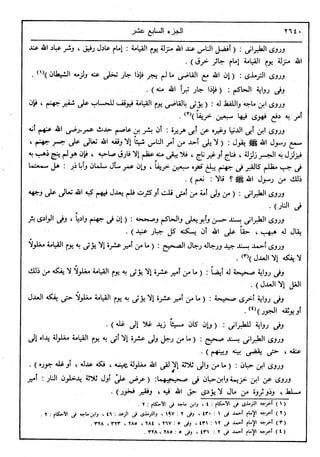 ٢٦٤٠ الجزء السابع عشر
وروى الطبرانى : ( أفضل الناس عند الله منزلة يوم القيامة : إمام عادل رفيق ، وشر عباد الله عند
الله منزلة يوم القيامة إمام جائر خرق ) .
وروى الترمذى : ( إن الله مع القاضى ما لم يجر فإذا جار تخلى عنه ولزمه الشيطان )(١) .
وفى رواية الحاكم : ( فإذا جار تبرأ الله منه ) .
وروى ابن ماجه واللفظ له : ( يؤتى بالقاضى يوم القيامة فيوقف للحساب على شفير جهنم ، فإن
أمر به دفع فهوى فيها سبعين خريفاً )(٢) .
وروى ابن أبى الدنيا وغيره عن أبى هريرة : أن بشر بن عاصم حدث عمر رضى الله عنهم أنه
سمع رسول الله ﷺ يقول : ( لا يلى أحد من أمر الناس شيئاً إلا وقفه الله تعالى على جسر جهنم ،
فيزلزل به الجسر زلزلة ، فناج أو غير ناج ، فلا يبقى منه عظم إلا فارق صاحبه ، فإن هو لم ينج ذهب به
فى جب مظلم كالقبر فى جهنم لا يبلغ قعره سبعين خريفاً ) ، وإن عمر سأل سلمان وأبا ذر : هل سمعتما
ذلك من رسول الله ﷺ ؟ قالا : نعم ) .
وروى الطبرانى : ( من ولى أمة من أمتى قلت أو كثرت فلم يعدل فيهم كبه الله تعالى على وجهه
فى النار ) .
وروى الطبرانى بسند حسن وأبو يعلى والحاكم وصححه : ( إن فى جهنم وادياً ، وفى الوادى بئر
يقال له هبهب ، حقاً على الله أن يسكنه كل جبار عنيد ) .
وروى أحمد بسند جيد ورجاله رجال الصحيح : ( ما من أمير عشرة إلا يؤتى به يوم القيامة مغلولاً
لا يفكه إلا العدل )(٣) .
وفى رواية صحيحة له أيضاً : ( ما من أمير عشرة إلا يؤتى به يوم القيامة مغلولاً لا يفكه من ذلك
الغل إلا العدل ) .
وفى رواية أخرى صحيحة : ( ما من أمير عشرة إلا يؤتى به يوم القيامة مغلولاً حتى يفكه العدل
أو يوثقه الجور )(٤) .
وفى رواية للطبرانى : ( وإن كان مسيئاً زيد غلا إلى غله ) .
وروى الطبرانى بسند صحيح : ( ما من رجل ولى عشرة إلا أتى به يوم القيامة مغلولة يداه إلى
عنقه ، حتى يقضى بينه وبينهم ) .
وروى ابن حبان : ( ما من والى ثلاثة إلا لقى الله مغلولة يمينه ، فكه عدله ، أو غله جوره ) .
وروى عن ابن خزيمة وابن حبان فى صحيحيهما : ( عرض علىّ أول ثلاثة يدخلون النار : أمير
مسلط ، وذو ثروة من مال لا يؤدى حق الله فيه ، وفقير فخور ) .
(١) أخرجه الترمذى فى الأحكام : ٤ ، وابن ماجه فى الأحكام : ٢ .